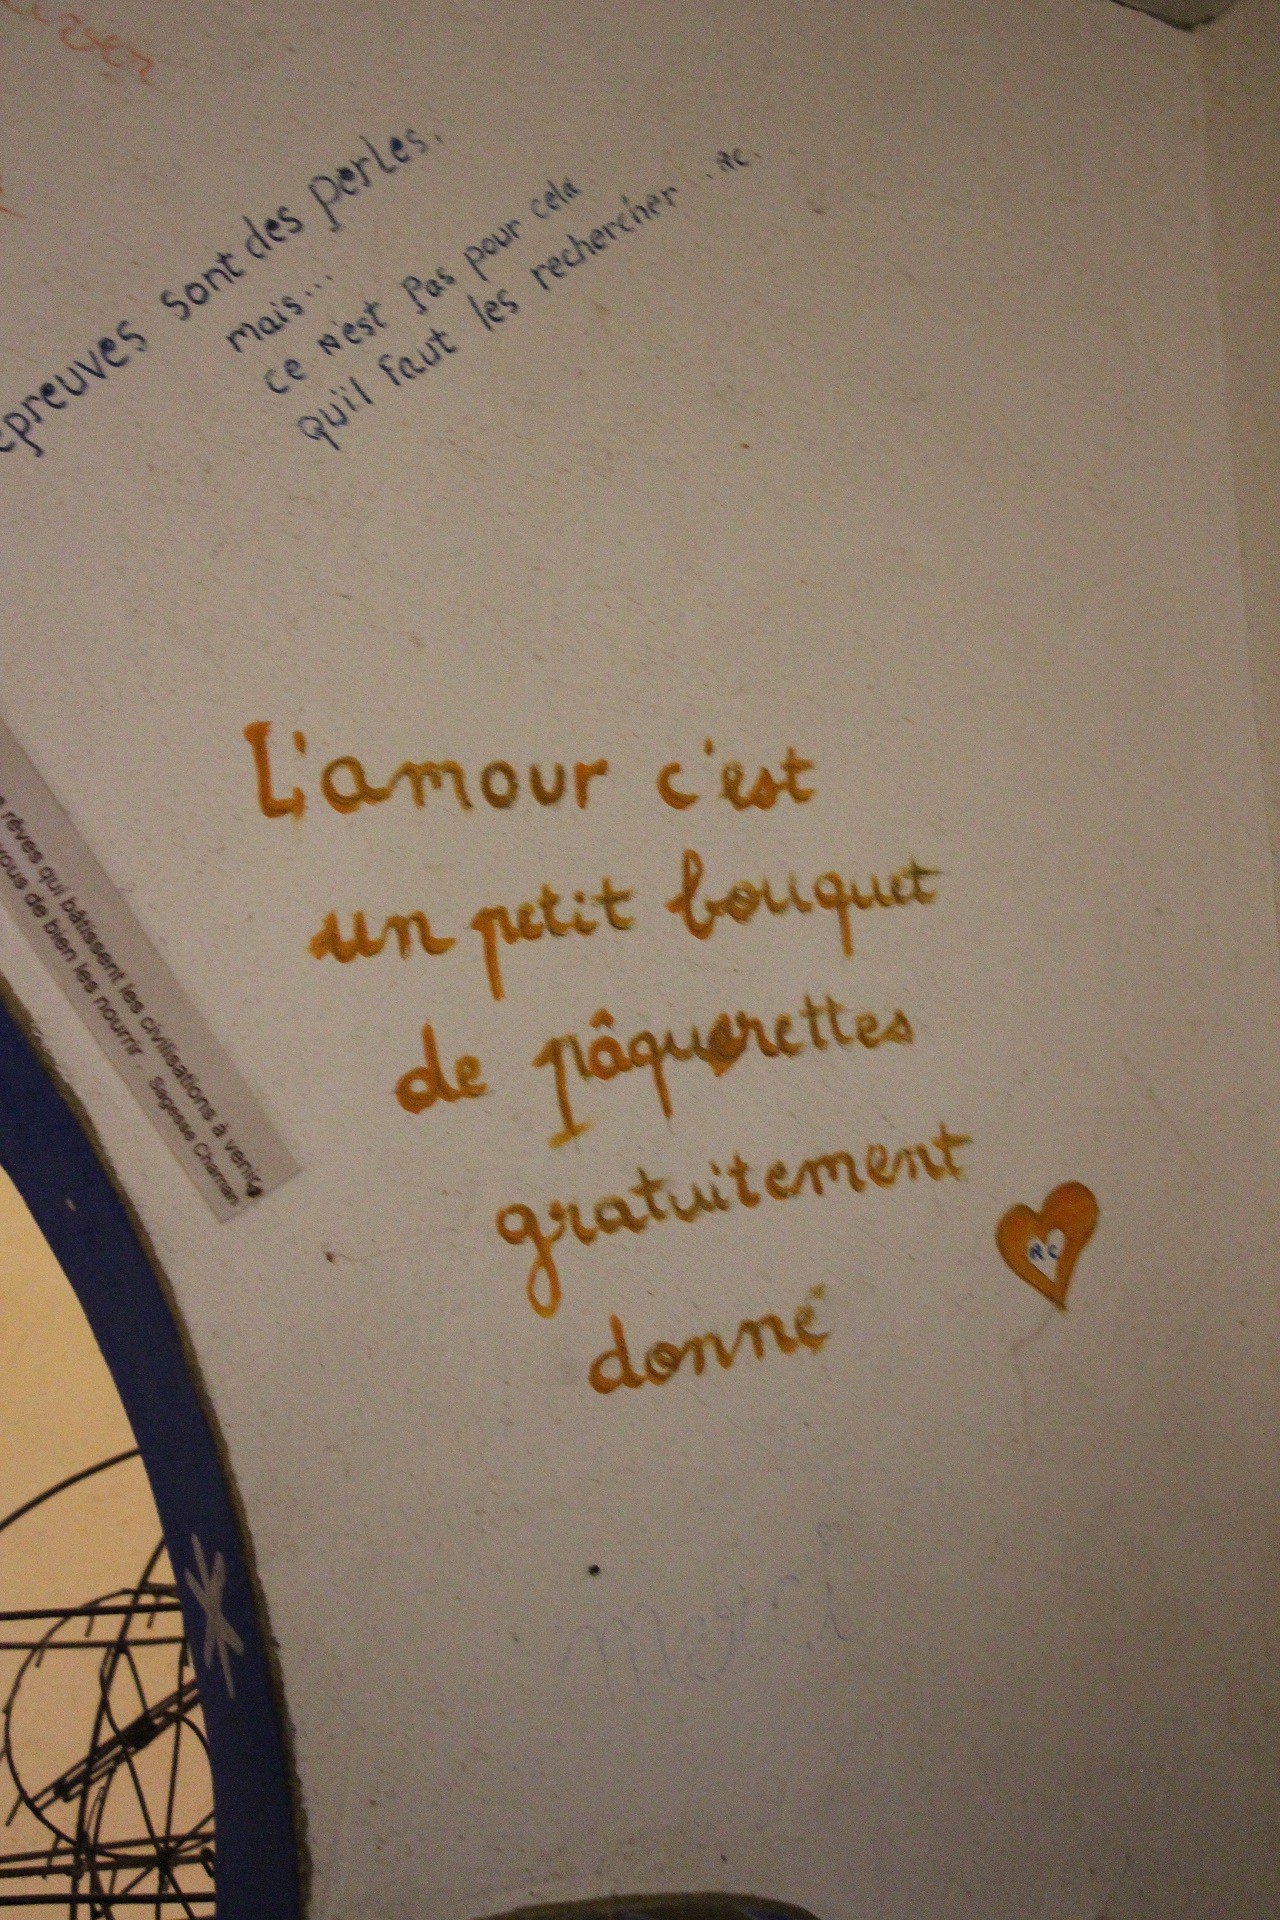 épreuves sont des perles,
mais...
ce n'est pas pour cela
qu'il faut les rechercher . RC.
rêves qui bâtissent les civilisations à venir
vous de bien les nourrir. Sagesse Chaman
L'amour c'est
un petit bouquet
de pâquerettes
gratuitement
donné
RC
Merci